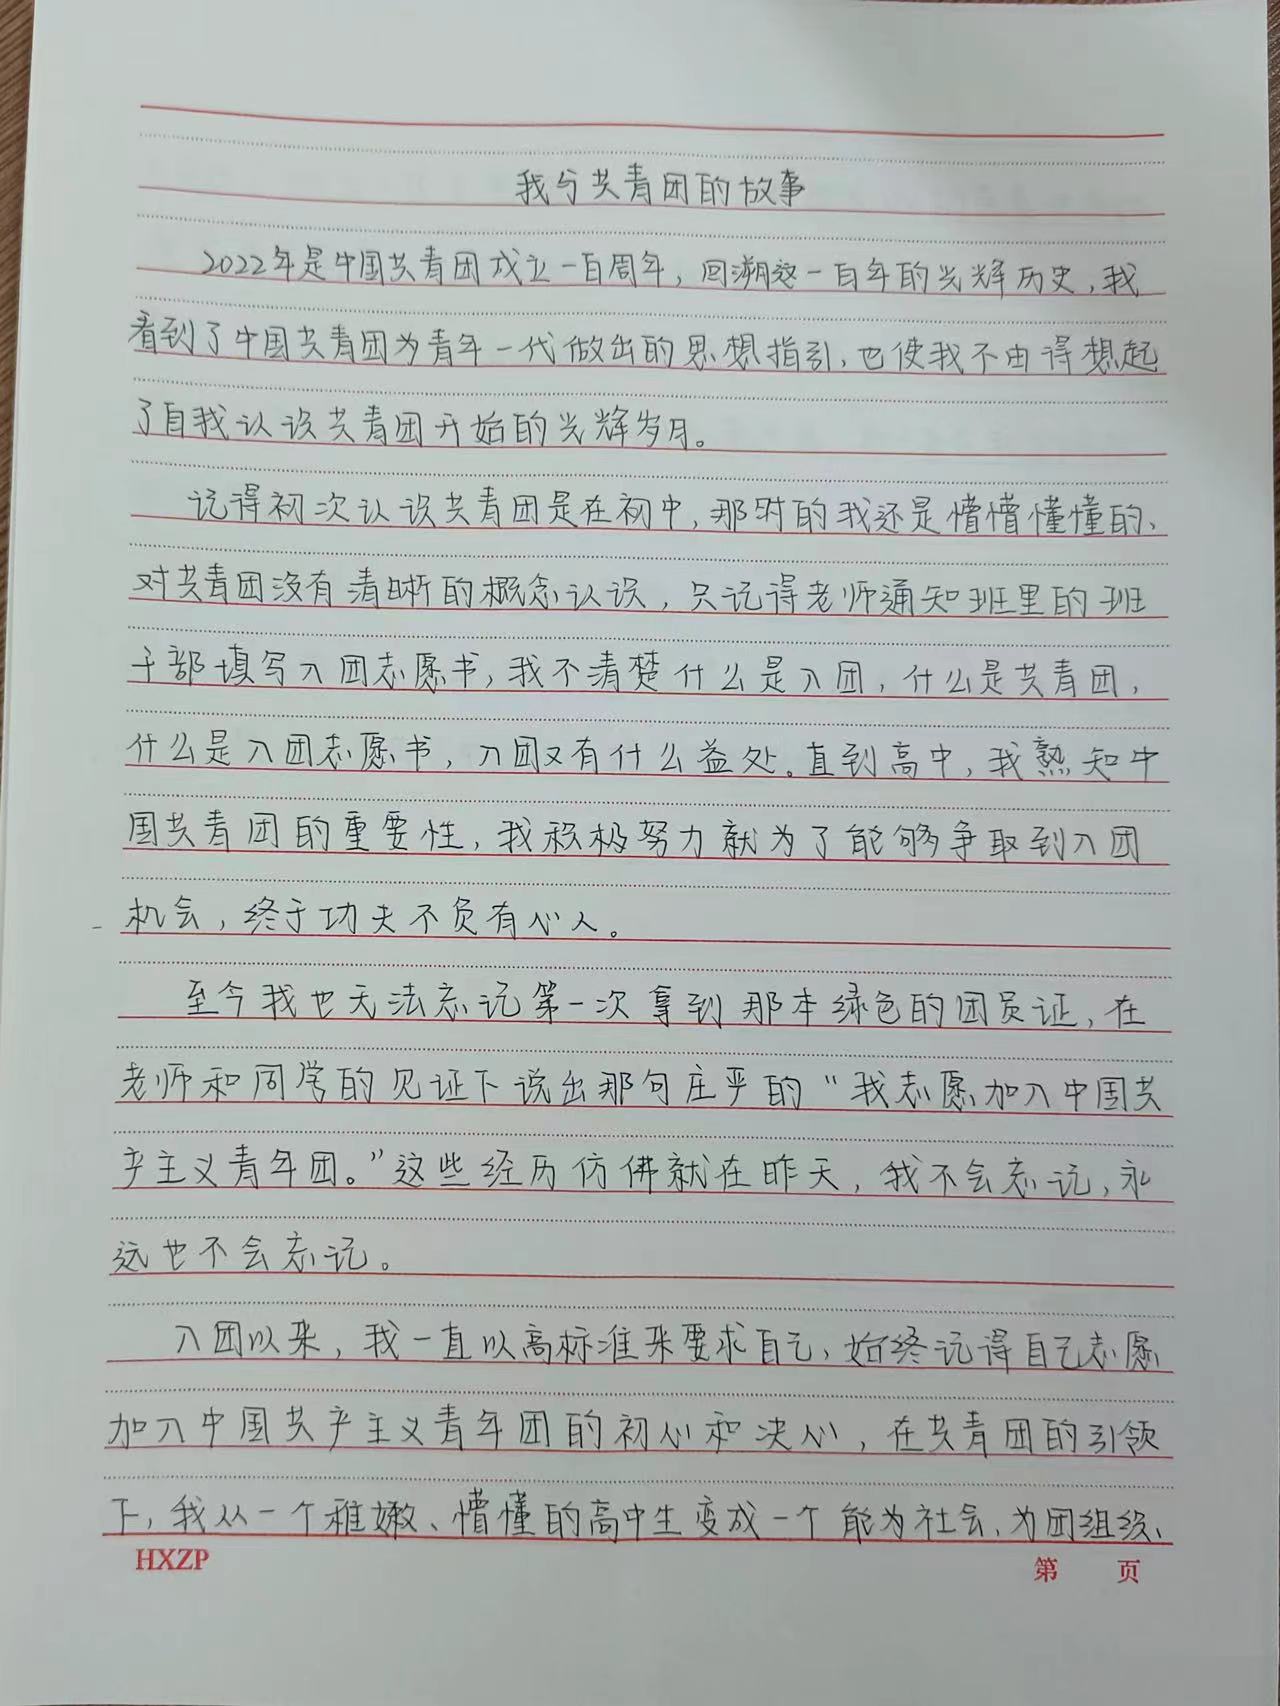 我与共青团的故事
2022年是中国共青团成立一百周年，回溯这一百年的光辉历史，我
看到了中国共青团为青年一代做出的思想指引，也使我不由得想起
了自我认识共青团开始的光辉岁月。
记得初次认识共青团是在初中，那时的我还是懵懵懂懂的、
对共青团没有清晰的概念认识，只记得老师通知班里的班
干部填写入团志愿书，我不清楚什么是入团，什么是共青团，
什么是入团志愿书，入团又有什么益处。直到高中，我熟知中
国共青团的重要性，我积极努力就为了能够争取到入团
机会，终于功夫不负有心人。
至今我也无法忘记第一次拿到那本绿色的团员证，在
老师和同学的见证下说出那句庄严的“我志愿加入中国共
产主义青年团。”这些经历仿佛就在昨天，我不会忘记，永
远也不会忘记。
入团以来，我一直以高标准来要求自己，始终记得自己志愿
加入中国共产主义青年团的初心和决心，在共青团的引领
下，我从一个稚嫩、懵懂的高中生变成一个能为社会、为团组织、
HXZP
第 页